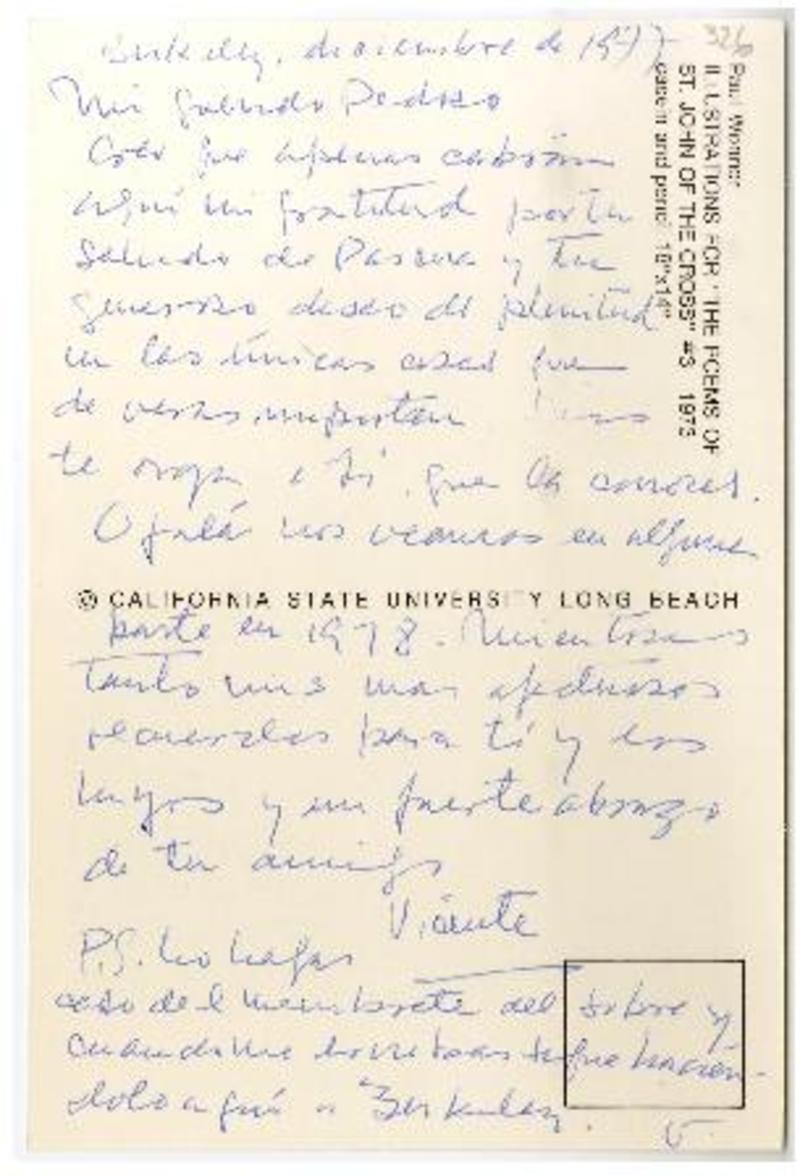 326
Berkeley, diciembre de 1977
Mi querido Pedro
Creo que apenas cabrán
aquí mi gratitud por tu
saludo de Pascua y tu
generoso deseo de plenitud
en las únicas cosas que
de veras importan. Dios
te oiga a ti, que las conoces.
Ojalá nos veamos en alguna
parte en 1978. Mientras
tanto mis más afectuosos
recuerdos para ti y los
tuyos y un fuerte abrazo
de tu amigo
Vicente
P.S. No hagas
caso del membrete del sobre y
cuando me escribas sigue hacién-
dolo aquí a Berkeley.
V.
Paul Wonner
ILLUSTRATIONS FOR "THE POEMS OF
ST. JOHN OF THE CROSS" #3 1975
casein and pencil 18"x14"
© CALIFORNIA STATE UNIVERSITY LONG BEACH